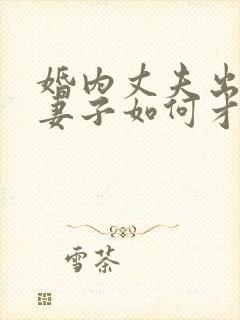 婚内丈夫出
妻子如何才
雪茶